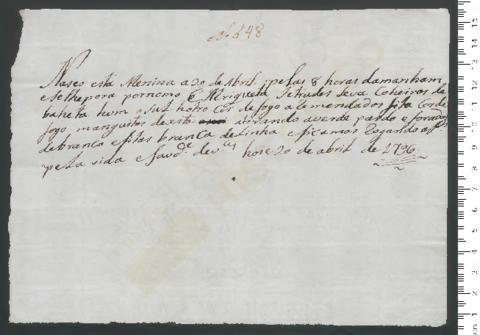 Nasco esta Menina a 20 de Abril pelas 8 horas damanham
e se lhe pora por nome Henriqueta Getrudes Leva Coheiros de
baheta hum azul hotro Cor de fogo alemendados fita Cor de
fogo, manguitos de atirando a verde pardo e forrados
de branco e fitas branca de linha e ficamos Rogando a
pela vida e Saude de hoie 20 de abril de 1796